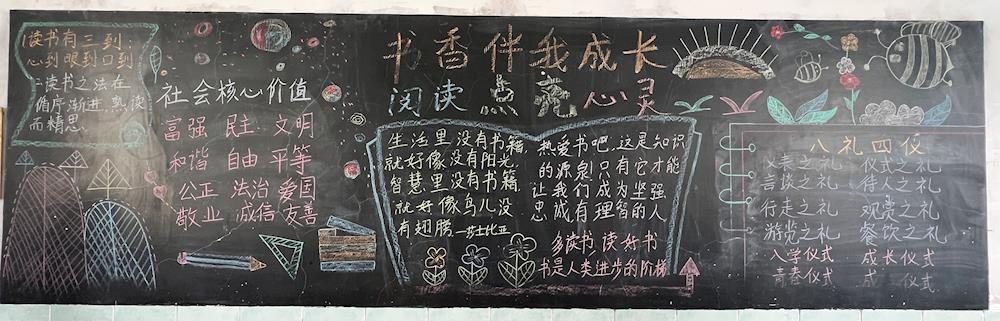 书香伴我成长
阅读点亮心灵
读书有三到：
心到眼到口到
读书之法在
循序渐进，熟读
而精思。
社会核心价值
富强 民主 文明
和谐 自由 平等
公正 法治 爱国
敬业 诚信 友善
生活里没有书籍，
就好像没有阳光，
智慧里没有书籍
就好像鸟儿没
有翅膀—莎士比亚
热爱书吧，这是知识
的源泉！只有它才能
让我们成为坚强
忠诚有理智的人
多读书，读好书
书是人类进步的阶梯
八礼四仪
仪表之礼 仪式之礼
言谈之礼 待人之礼
行走之礼 观赏之礼
游览之礼 餐饮之礼
入学仪式 成长仪式
青春仪式 成 仪式